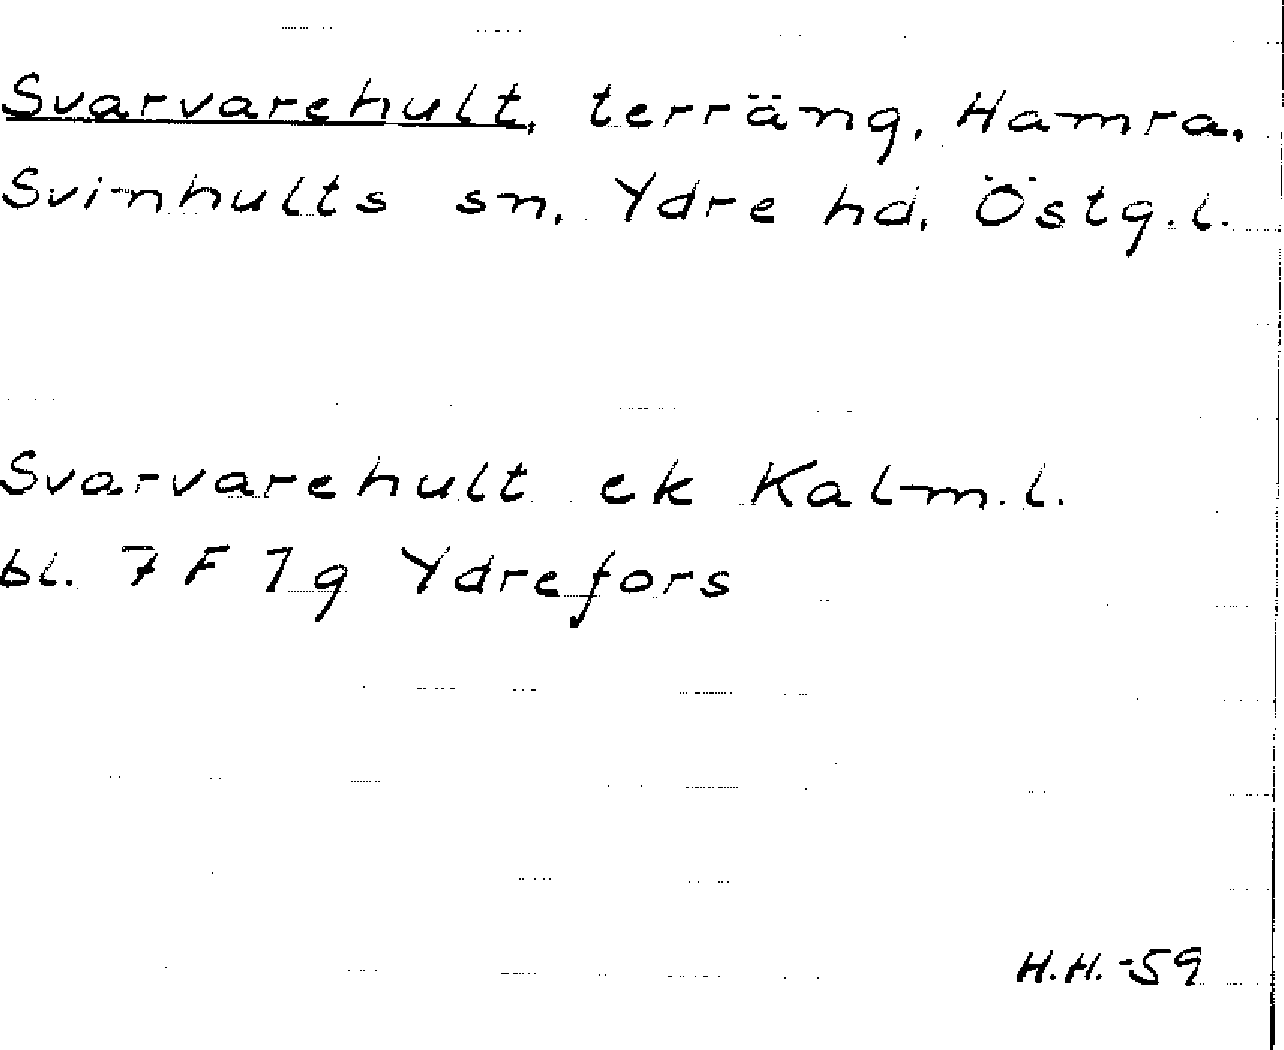 Svarvarehult, terräng, Hamra,
Svinhults sn, Ydre hd, Östg.l.
Svarvarehult ek Kalm.l.
bl. 7 F 1g Ydrefors
H.H.-59